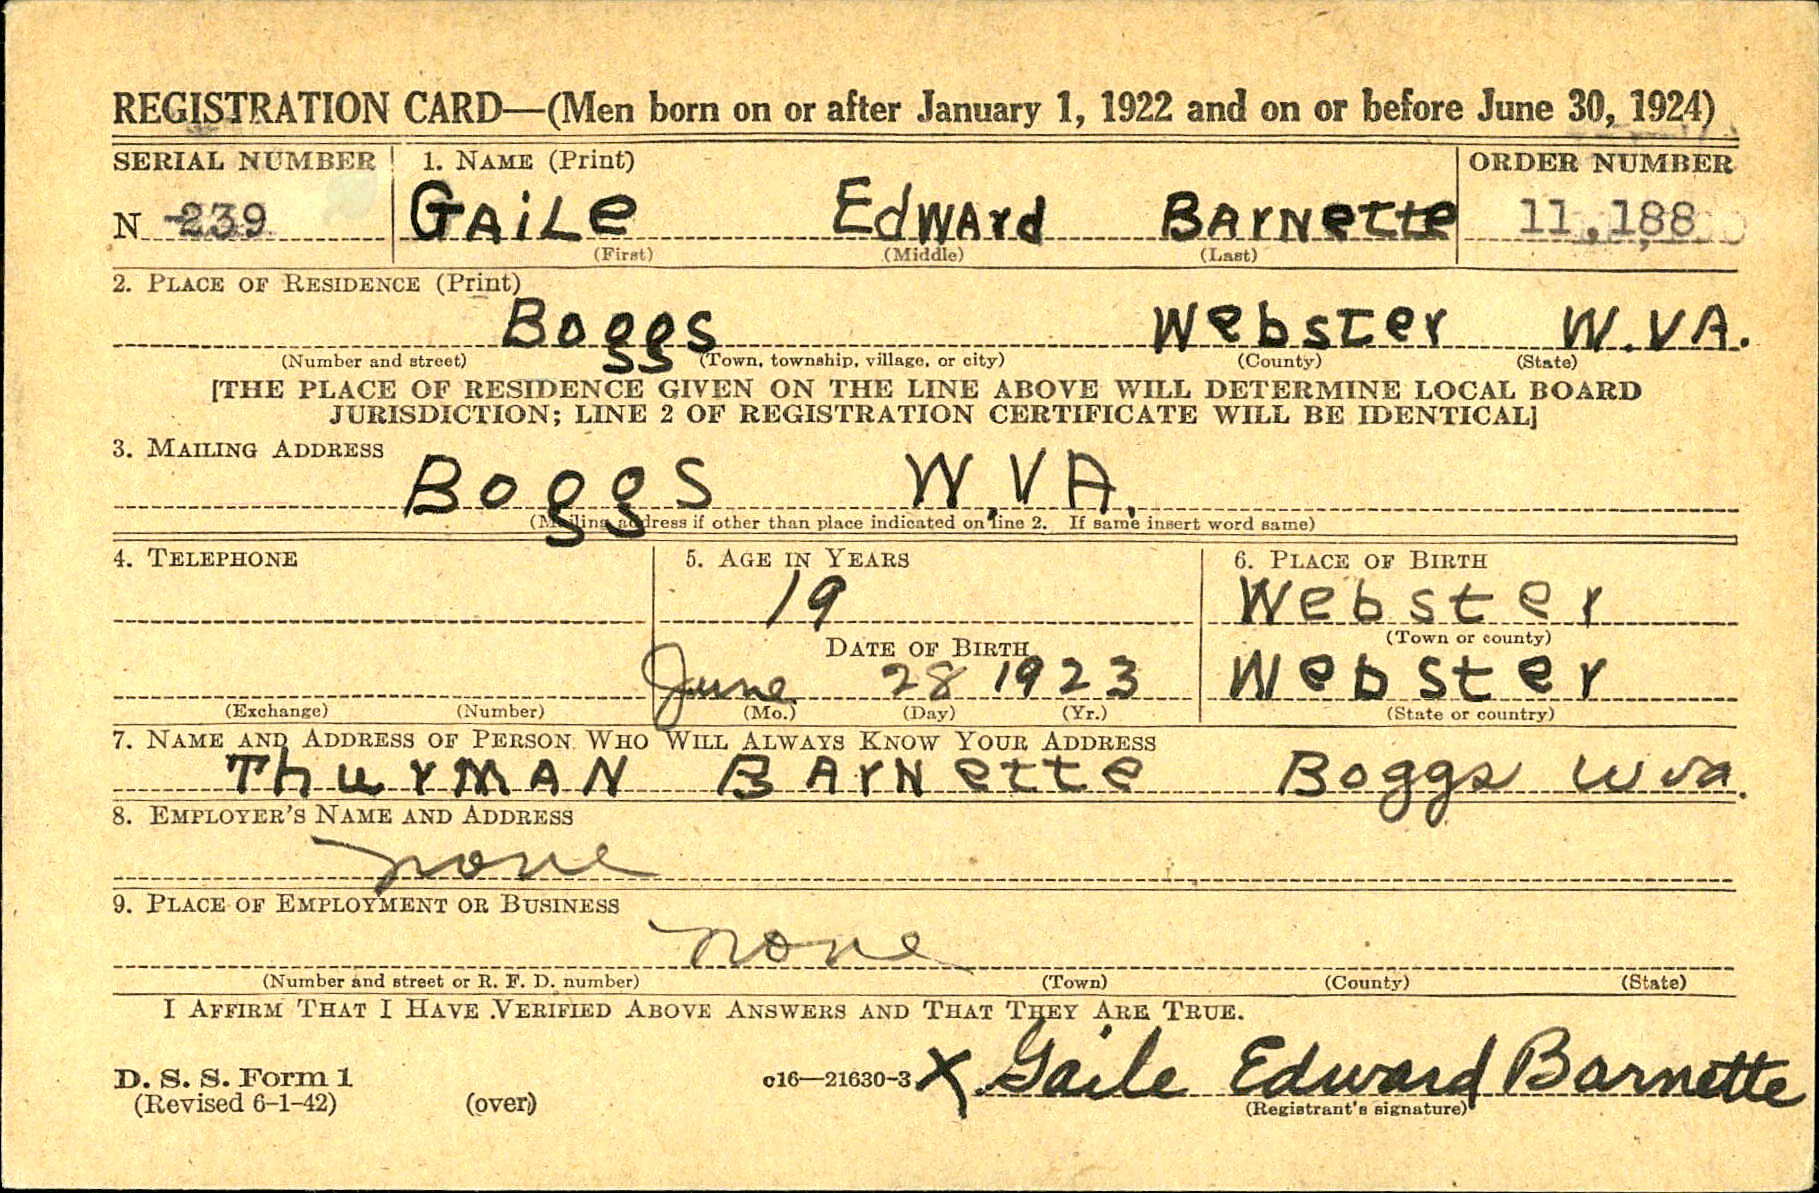 REGISTRATION CARD—(Men born on or after January 1, 1922 and on or before June 30, 1924)
SERIAL NUMBER 1. NAME (Print) ORDER NUMBER
N 239 GAiLe EdWArd BArNette 11,188
(First) (Middle) (Last)
2. PLACE OF RESIDENCE (Print)
Boggs Webster W.VA.
(Number and street) (Town, township, village, or city) (County) (State)
[THE PLACE OF RESIDENCE GIVEN ON THE LINE ABOVE WILL DETERMINE LOCAL BOARD
JURISDICTION; LINE 2 OF REGISTRATION CERTIFICATE WILL BE IDENTICAL]
3. MAILING ADDRESS
Boggs W.VA.
(Mailing address if other than place indicated on line 2. If same insert word same)
4. TELEPHONE 5. AGE IN YEARS 6. PLACE OF BIRTH
19 Webster
DATE OF BIRTH (Town or county)
June 28 1923 Webster
(Exchange) (Number) (Mo.) (Day) (Yr.) (State or country)
7. NAME AND ADDRESS OF PERSON WHO WILL ALWAYS KNOW YOUR ADDRESS
ThurMAN BArNette Boggs W va.
8. EMPLOYER'S NAME AND ADDRESS
none
9. PLACE OF EMPLOYMENT OR BUSINESS
none
(Number and street or R. F. D. number) (Town) (County) (State)
I AFFIRM THAT I HAVE VERIFIED ABOVE ANSWERS AND THAT THEY ARE TRUE.
D. S. S. Form 1 c16—21630-3 X Gaile Edward Barnette
(Revised 6-1-42) (over) (Registrant's signature)